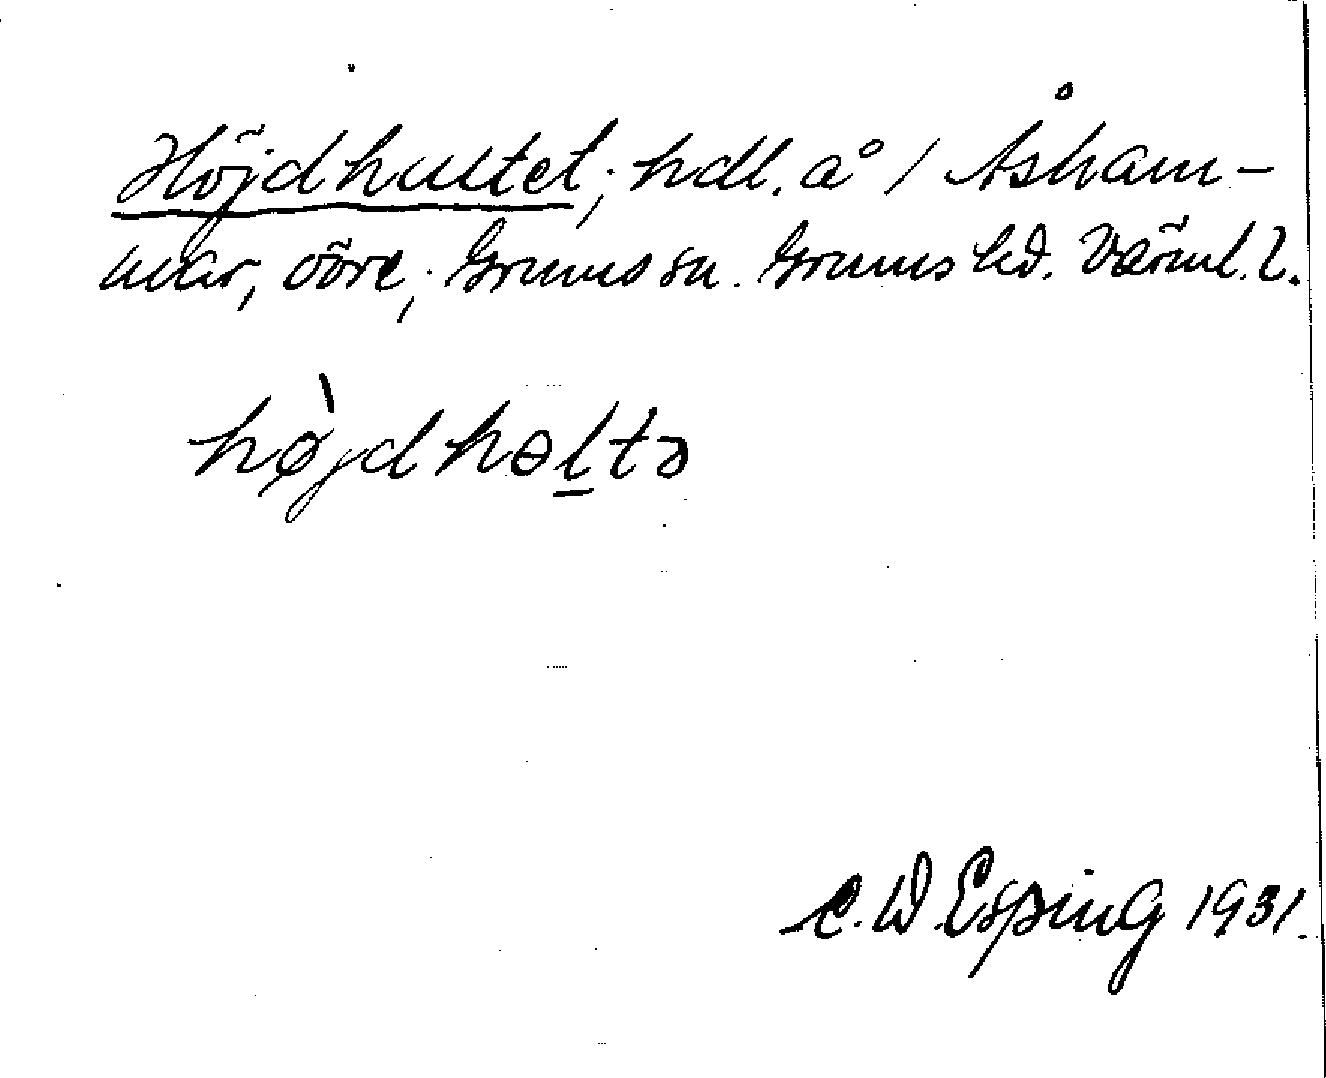 Höjdhultet; hdl. å / Åsham-
mar, övre; Grums sn. Grums hd. Värml. l.
hø̀jdhɵl̠tə
C. W. Esping 1931.